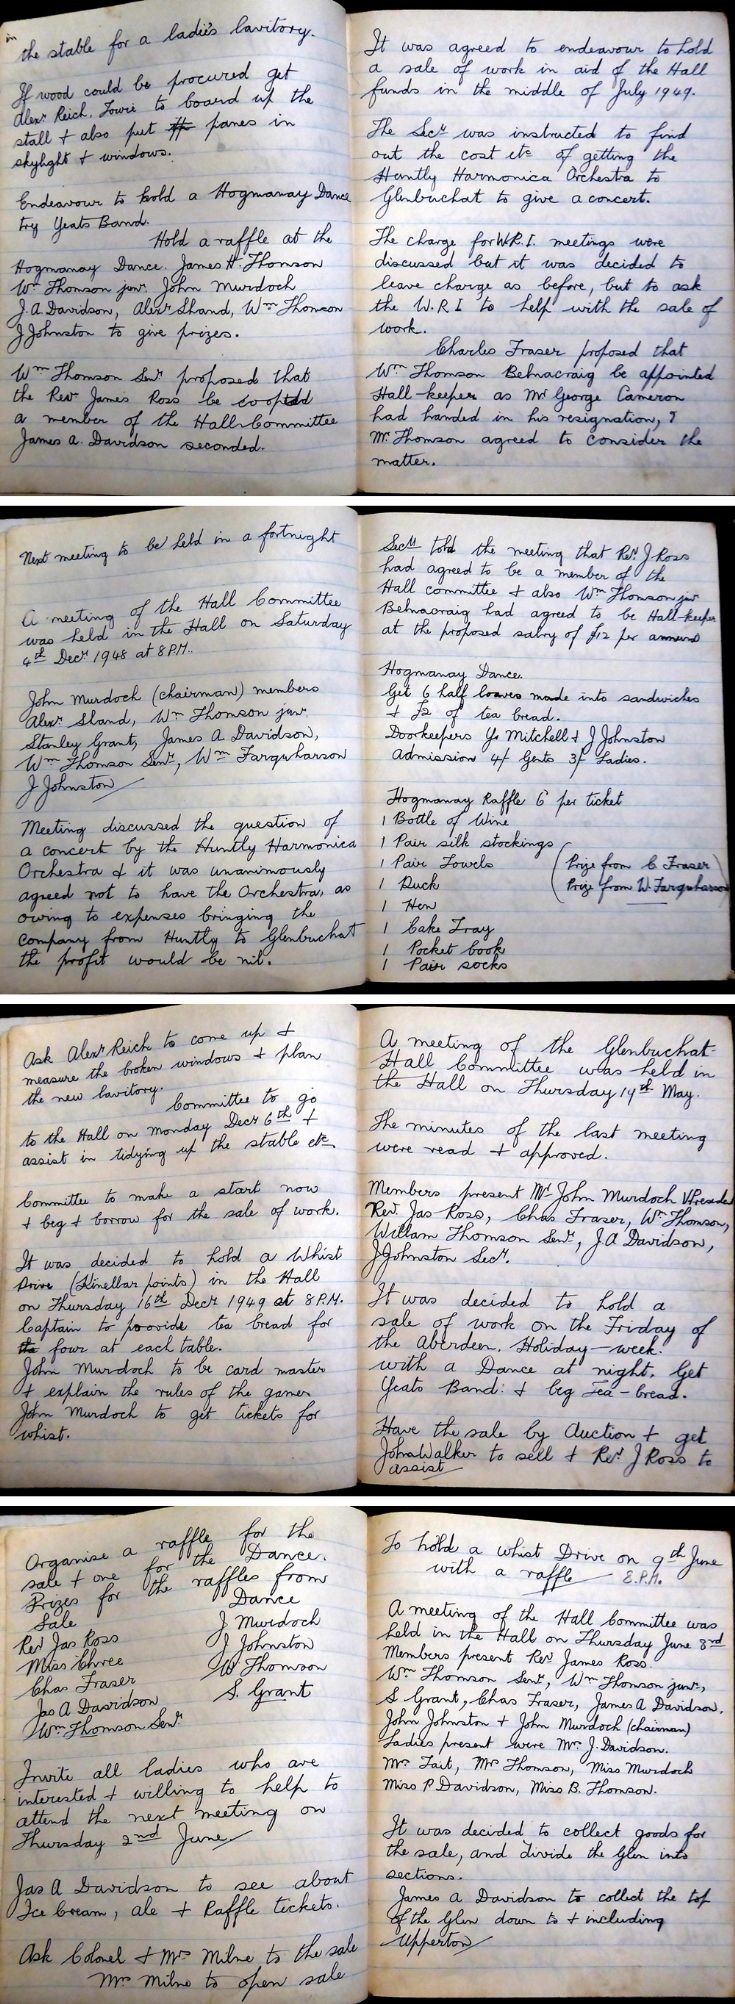 in
the stable for a ladies lavitory.
If wood could be procured get
Alexr Reich. Towie to board up the
stall + also put panes in
skylight + windows.
Endeavour to hold a Hogmanay Dance
try Yeats Band.
Hold a raffle at the
Hogmanay Dance. James H. Thomson
Wm Thomson junr John Murdoch
J.A Davidson, Alexr Shand, Wm Thomson
J Johnston to give prizes.
Wm Thomson Senr proposed that
the Revr James Ross be cooptdd
a member of the Hall-Committee
James A. Davidson seconded.
It was agreed to endeavour to hold
a sale of work in aid of the Hall
funds in the middle of July 1949.
The Secr was instructed to find
out the cost etc of getting the
Huntly Harmonica Orchestra to
Glenbuchat to give a concert.
The charge for W.R.I. meetings were
discussed but it was decided to
leave charge as before, but to ask
the W.R.I to help with the sale of
work.
Charles Fraser proposed that
Wm Thomson Belnacraig be appointed
Hall-keeper as Mr George Cameron
had handed in his resignation, &
Mr Thomson agreed to consider the
matter.
Next meeting to be held in a fortnight
A meeting of the Hall Committee
was held in the Hall on Saturday
4th Decr 1948 at 8 P.M.
John Murdoch (chairman) members
Alexr Shand, Wm Thomson junr
Stanley Grant, James A Davidson,
Wm Thomson Senr, Wm Farquharson
J Johnston
Meeting discussed the question of
a concert by the Huntly Harmonica
Orchestra & it was unanimously
agreed not to have the Orchestra, as
owing to expenses bringing the
company from Huntly to Glenbuchat
the profit would be nil.
Secr told the meeting that Revr J Ross
had agreed to be a member of the
Hall committee + also Wm Thomson jnr
Belnacraig had agreed to be Hall-keeper
at the proposed salry of £12 per annum
Hogmanay Dance.
Get 6 half loaves made into sandwiches
+ £2 of tea bread.
Doorkeepers Mitchell + J Johnston
Admission 4/ Gents 3/ Ladies.
Hogmanay Raffle 6 per ticket
1 Bottle of Wine
1 Pair silk stockings
1 Pair Towels (Prize from C Fraser)
1 Duck (Prize from W. Farquharson)
1 Hen
1 Cake Tray
1 Pocket book
1 Pair socks
Ask Alexr Reich to come up +
measure the broken windows + plan
the new lavitory.
Committee to go
to the Hall on Monday Decr 6th +
assist in tidying up the stable etc
Committee to make a start now
+ beg + borrow for the sale of work.
It was decided to hold a Whist
Drive (Kinellar points) in the Hall
on Thursday 16th Decr 1949 at 8 P.M.
Captain to provide tea bread for
four at each table.
John Murdoch to be card master
+ explain the rules of the games
John Murdoch to get tickets for
whist.
A meeting of the Glenbuchat
Hall Committee was held in
the Hall on Thursday 19th May.
The minutes of the last meeting
were read + approved.
Members present Mr John Murdoch
Revr Jas Ross, Chas Fraser, Wm Thomson,
William Thomson Senr, J.A Davidson,
J Johnston Secr.
It was decided to hold a
sale of work on the Friday of
the Aberdeen. Holiday-week.
with a Dance at night. Get
Yeats Band: + beg Tea-bread.
Have the sale by Auction + get
John Walker to sell + Revr J Ross to
assist
Organise a raffle for the
sale + one for the Dance.
Prizes for the raffles from
Sale Dance
Revr Jas Ross J Murdoch
Miss Chree J Johnston
Chas Fraser W Thomson
Jas A Davidson S. Grant
Wm Thomson Senr
Invite all ladies who are
interested + willing to help to
attend the next meeting on
Thursday 2nd June
Jas A Davidson to see about
Ice Cream, ale + Raffle tickets.
Ask Colonel + Mrs Milne to the sale
Mrs Milne to open sale
To hold a whist Drive on 9th June
with a raffle 8.P.M.
A meeting of the Hall Committee was
held in the Hall on Thursday June 3rd
Members present Revr James Ross
Wm Thomson Senr, Wm Thomson junr,
S Grant, Chas Fraser, James A Davidson.
John Johnston + John Murdoch (chairman)
Ladies present were Mrs J. Davidson.
Mrs Tait, Mrs Thomson, Miss Murdoch
Miss P Davidson, Miss B. Thomson.
It was decided to collect goods for
the sale, and divide the Glen into
sections.
James A Davidson to collect the top
of the Glen down to + including
Upperton